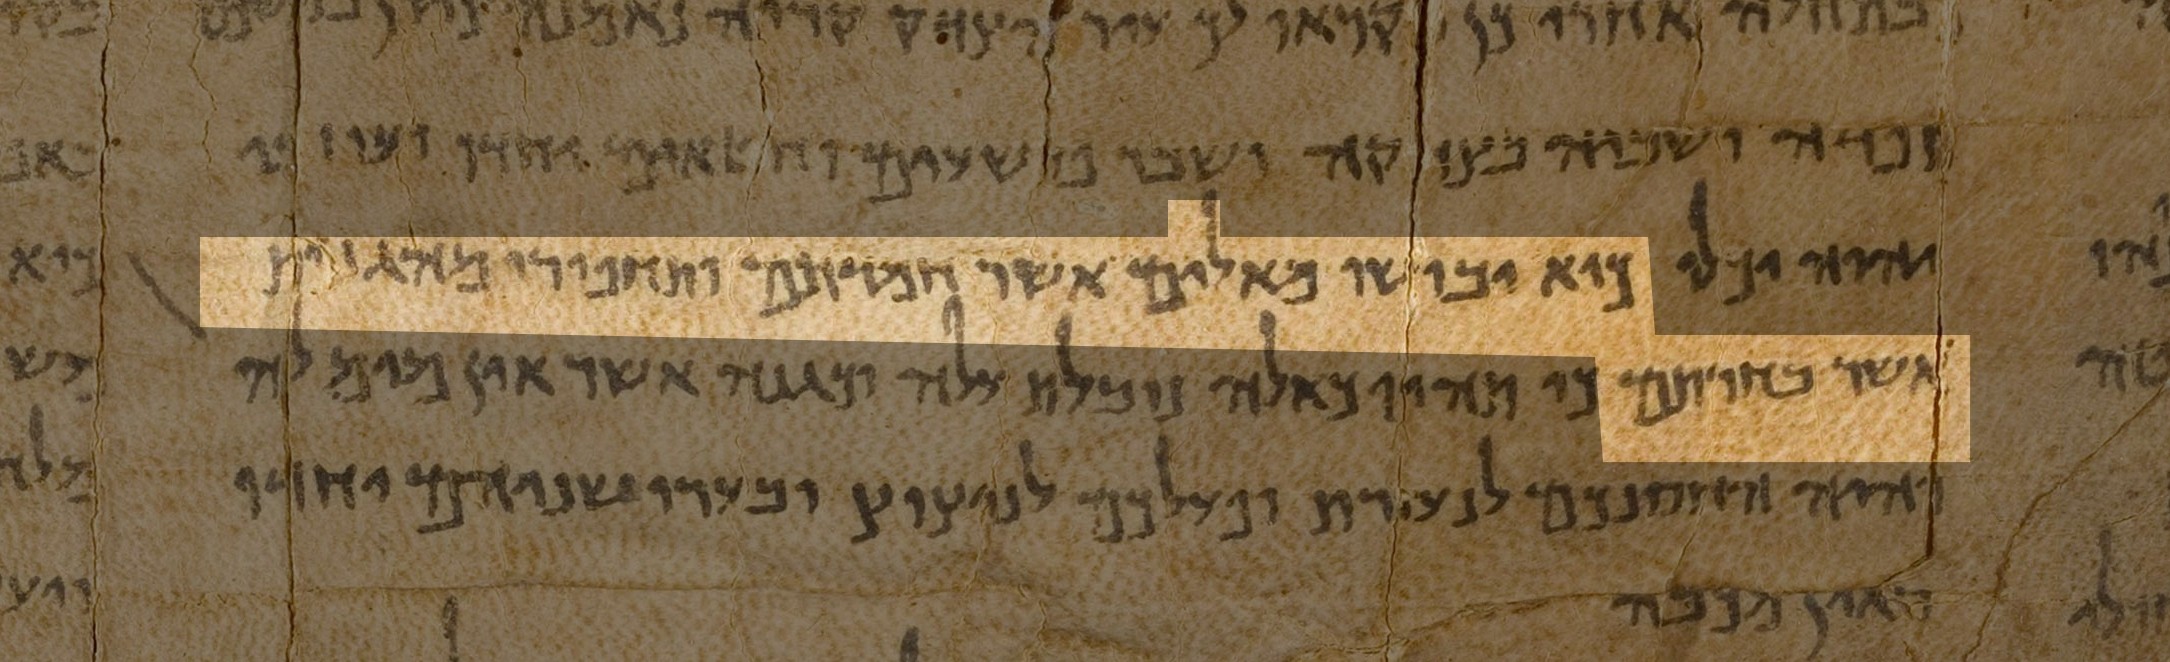 כבתחלה אחרי כן יקראו לך עיר הצדק קריה נאמנה ציון במשפט
תפדה ושביה בצדקה ושבר פושעים וחטאים יחדו ועוזבי
יהוה יכלו כיא יבושו מאלים אשר חמדתם ותחפורו מהגנות
אשר בחרתם כי תהיו כאלה נובלת עלה וכגנה אשר אין מים לה
והיה החסנכם לנעורת ופעלכם לניצוץ ובערו שניהם יחדיו
ואין מכבה